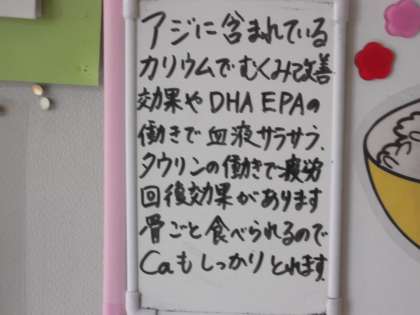 アジに含まれている
カリウムでむくみ改善
効果やDHA EPAの
働きで血液サラサラ、
タウリンの働きで疲労
回復効果があります
骨ごと食べられるので
Caもしっかりとれます。